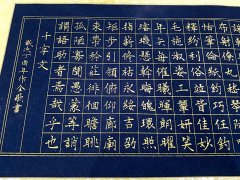 布射
恬筆倫紙鈞巧任釣
釋紛利俗並皆佳妙
毛施淑姿工顰妍笑
年矢每催曦暉朗曜
璇璣懸斡晦魄環照
指薪修祜永綏吉劭
矩步引領俯仰廊廟
束帶矜莊徘徊瞻眺
孤陋寡聞愚蒙等誚
謂語助者焉哉乎也
千字文